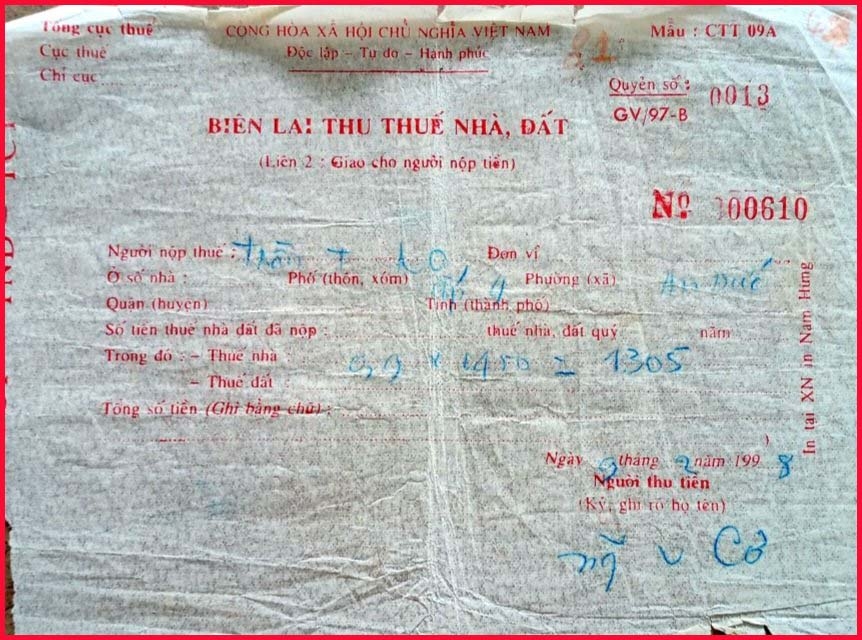 Tổng cục thuế
Cục thuế
Chi cục
CỘNG HÒA XÃ HỘI CHỦ NGHĨA VIỆT NAM
Độc lập – Tự do – Hạnh phúc
Mẫu : CTT 09A
Quyển số : 0013
GV/97-B
BIÊN LAI THU THUẾ NHÀ, ĐẤT
(Liên 2 : Giao cho người nộp tiền)
Nº 000610
Người nộp thuế : Đơn vị
Ở số nhà : Phố (thôn, xóm) Phường (xã)
Quận (huyện) Tỉnh (thành phố)
Số tiền thuế nhà đất đã nộp : thuế nhà, đất quý năm
Trong đó : – Thuế nhà : 09 x 1450 = 1305
– Thuế đất :
Tổng số tiền (Ghi bằng chữ) :
)
Ngày tháng 2 năm 1998
Người thu tiền
(Ký, ghi rõ họ tên)
In tại XN in Nam Hưng